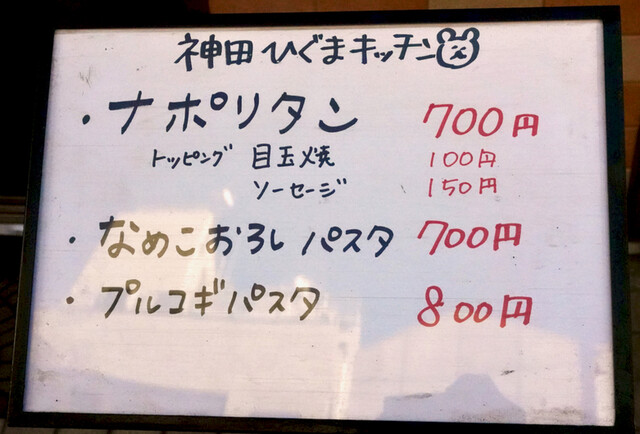 神田ひぐまキッチン
・ナポリタン 700円
トッピング 目玉焼 100円
ソーセージ 150円
・なめこおろしパスタ 700円
・プルコギパスタ 800円